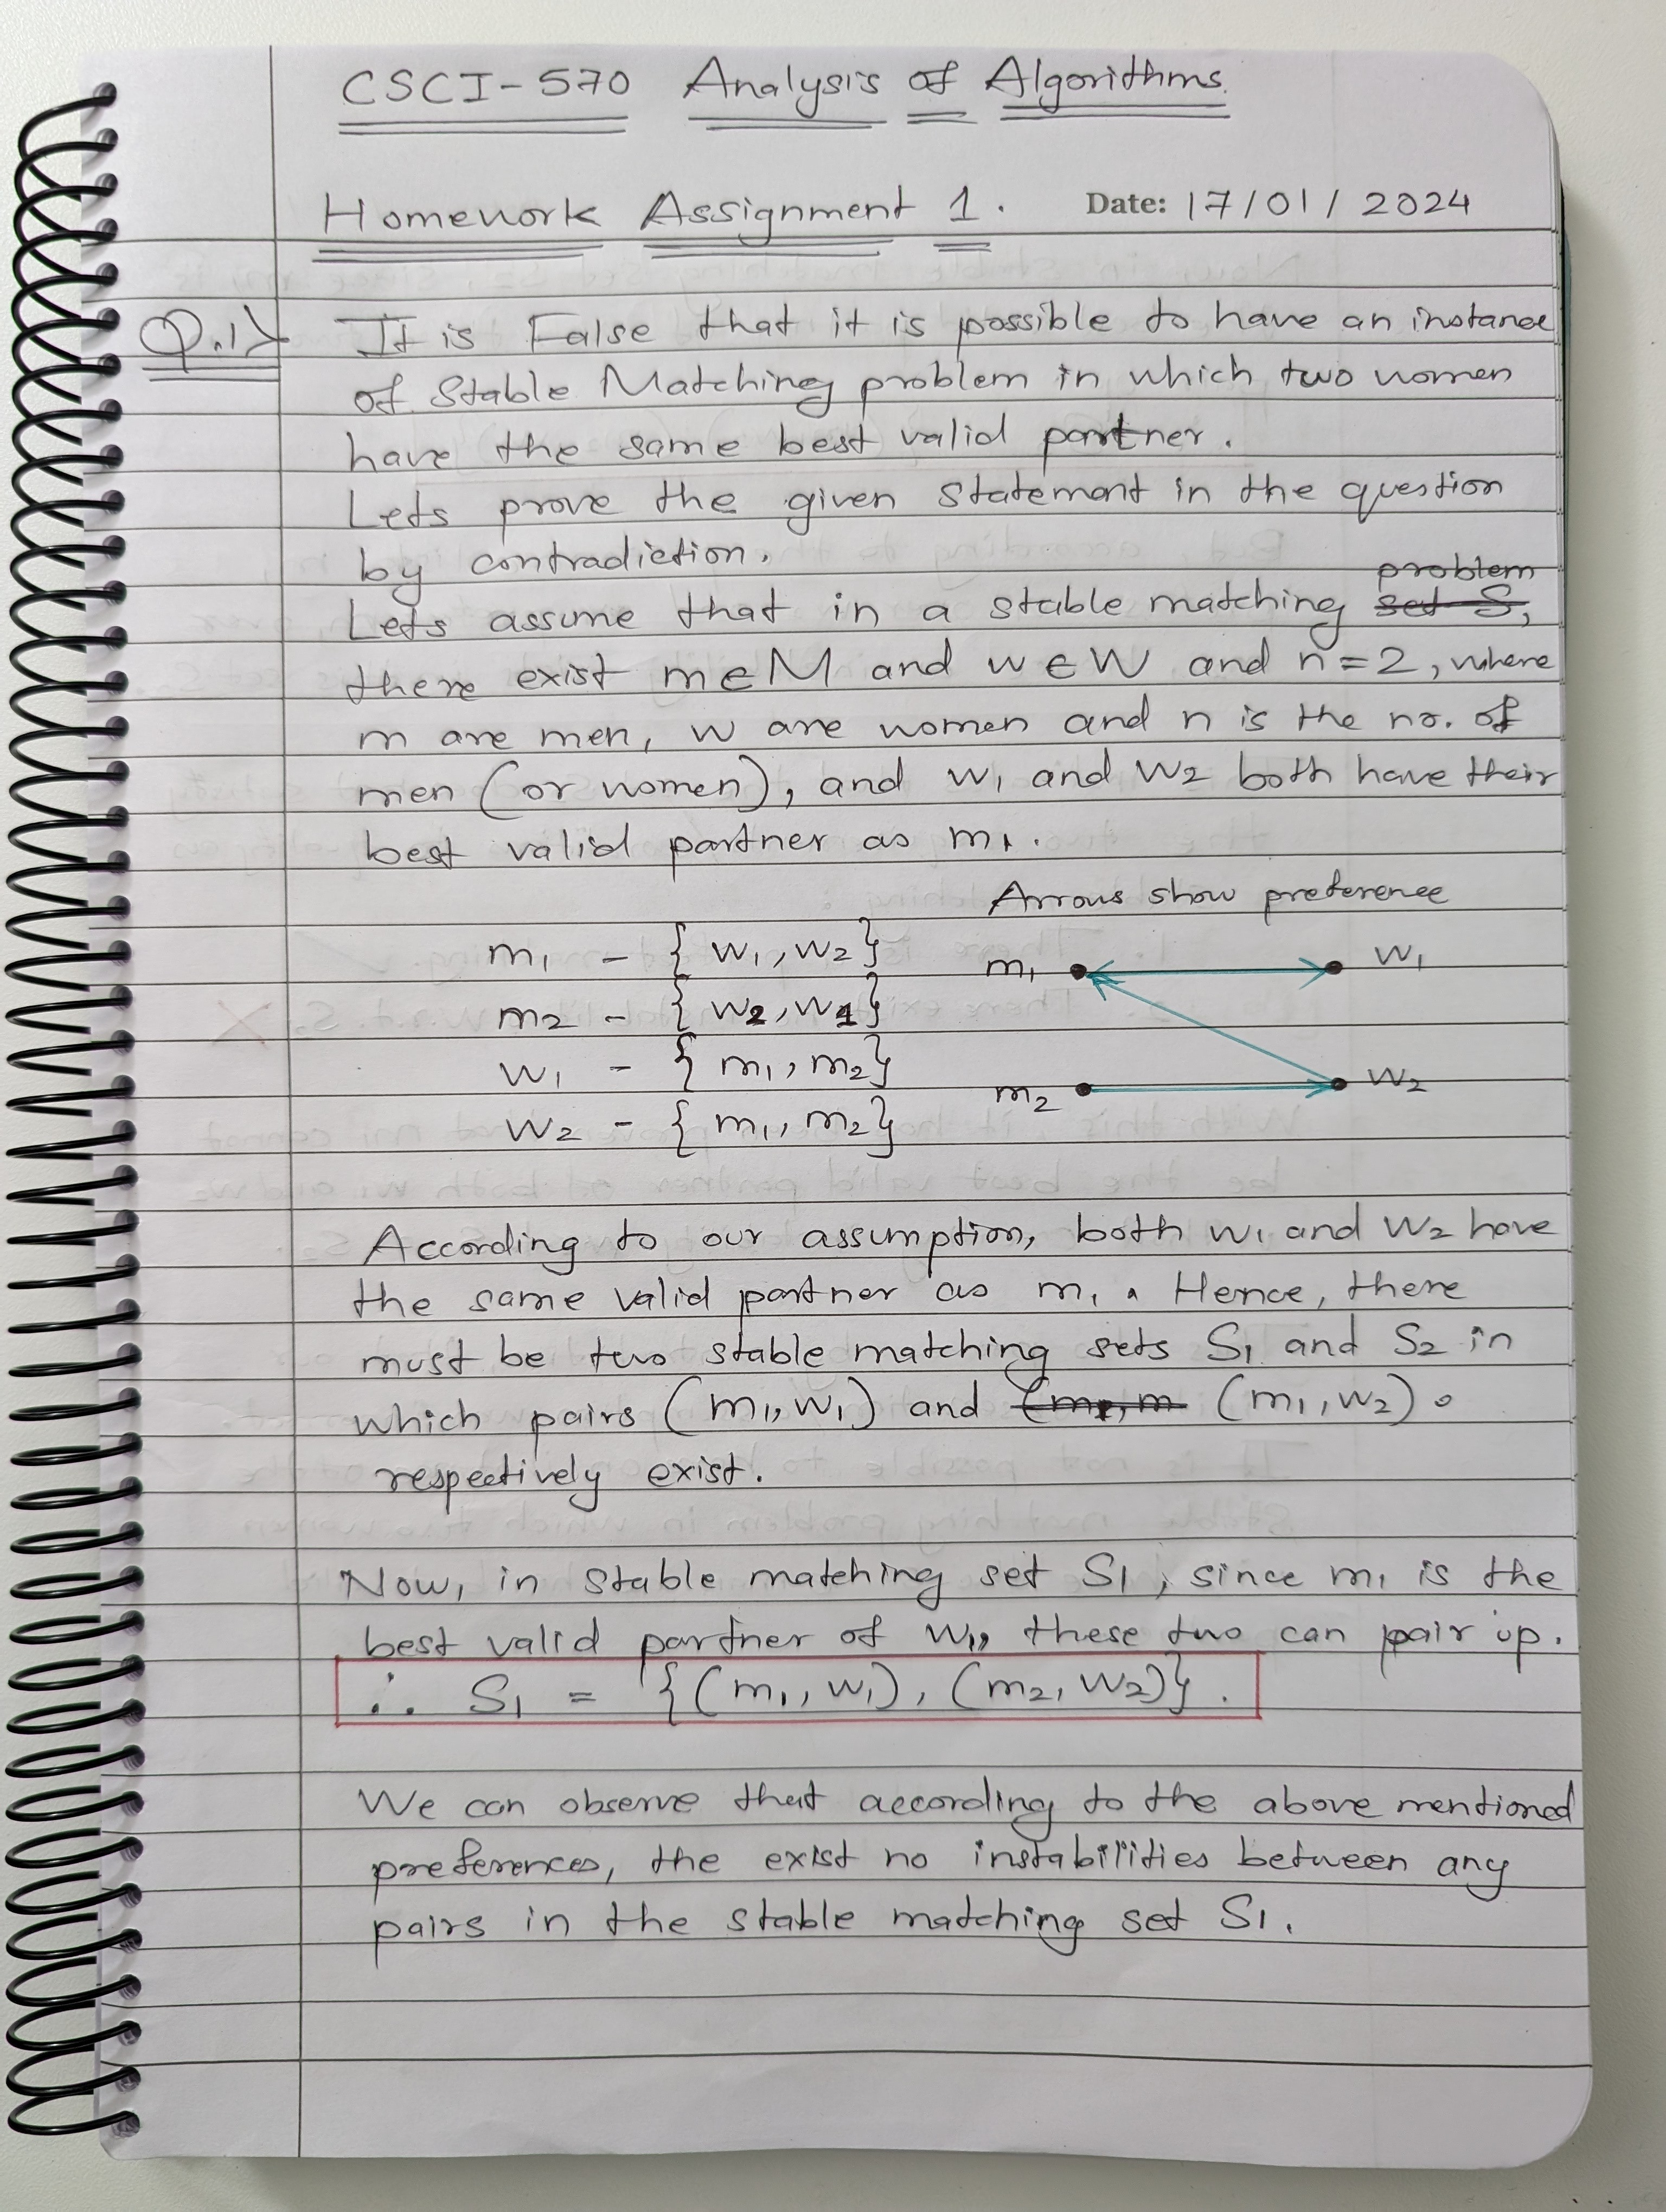 CSCI-570 Analysis of Algorithms.
Homework Assignment 1. Date: 17/01/2024
Q.1> It is False that it is possible to have an instance
of Stable Matching problem in which two women
have the same best valid partner.
Lets prove the given statement in the question
by contradiction.
problem
Lets assume that in a stable matching set S,
there exist m∈M and w∈W and n=2, where
m are men, w are women and n is the no. of
men (or women), and w1 and w2 both have their
best valid partner as m1.
Arrows show preference
m1 - {w1, w2}
m2 - {w2, w1}
w1 - {m1, m2}
w2 - {m1, m2}
m1 w1
m2 w2
According to our assumption, both w1 and w2 have
the same valid partner as m1. Hence, there
must be two stable matching sets S1 and S2 in
which pairs (m1, w1) and (m1, w2).
respectively exist.
Now, in stable matching set S1, since m1 is the
best valid partner of w1, these two can pair up.
∴ S1 = {(m1, w1), (m2, w2)}.
We can observe that according to the above mentioned
preferences, the exist no instabilities between any
pairs in the stable matching set S1.